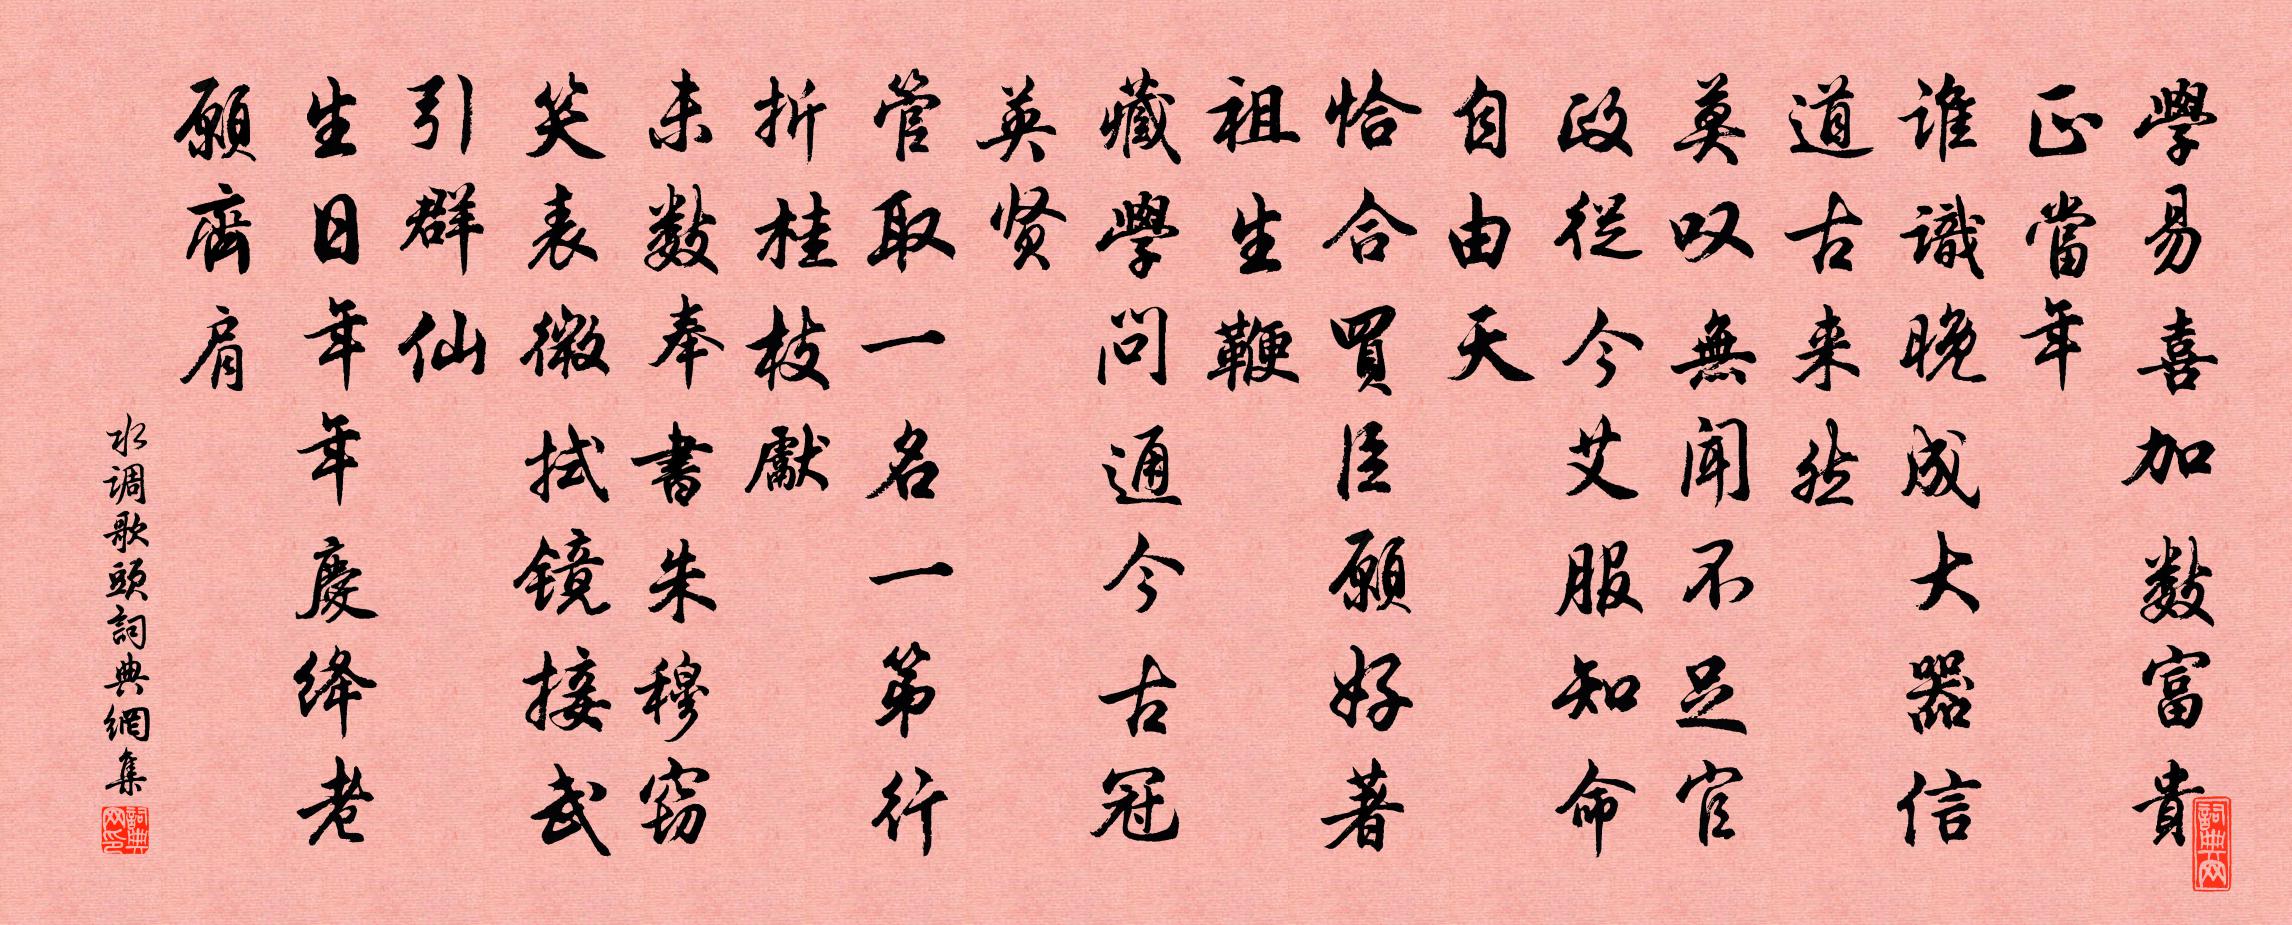 學易喜加数富貴
正當年
谁識晚成大器信
道古来然
莫叹無闻不足官
政従今艾服知命
自由天
恰合買臣願好著
祖生鞭
藏學问通今古冠
英贤
管取一名一第行
折桂枝獻
未数奉書朱穆窃
笑表微拭镜接武
引群仙
生日年年慶绛老
願齊肩
水调歌頭詞典網集
詞典网印
詞典网